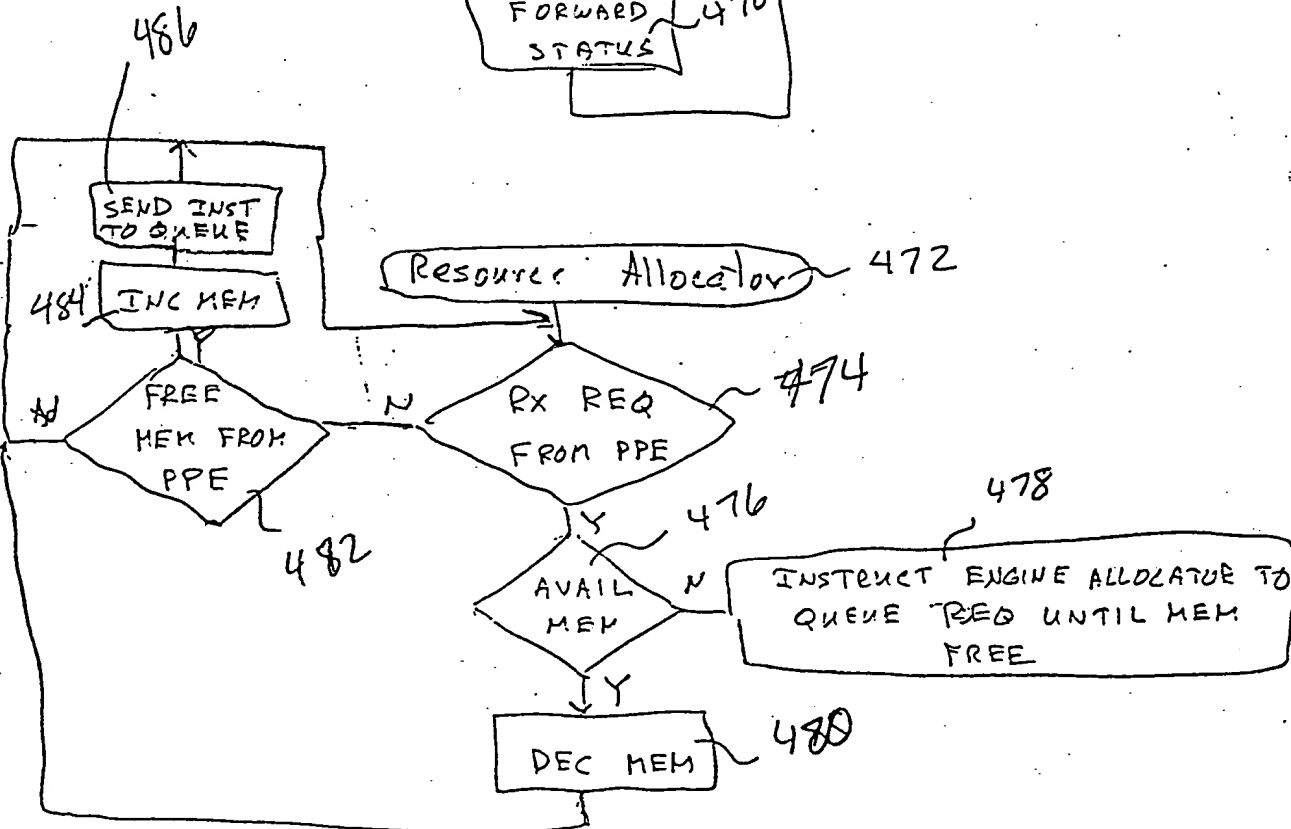 FORWARD
STATUS
486
SEND INST
TO QUEUE
Resource Allocator
472
484
INC MEM
Y
FREE
MEM FROM
PPE
N
RX REQ
FROM PPE
474
482
Y
476
478
AVAIL
MEM
N
INSTRUCT ENGINE ALLOCATOR TO
QUEUE REQ UNTIL MEM
FREE
Y
DEC MEM
480